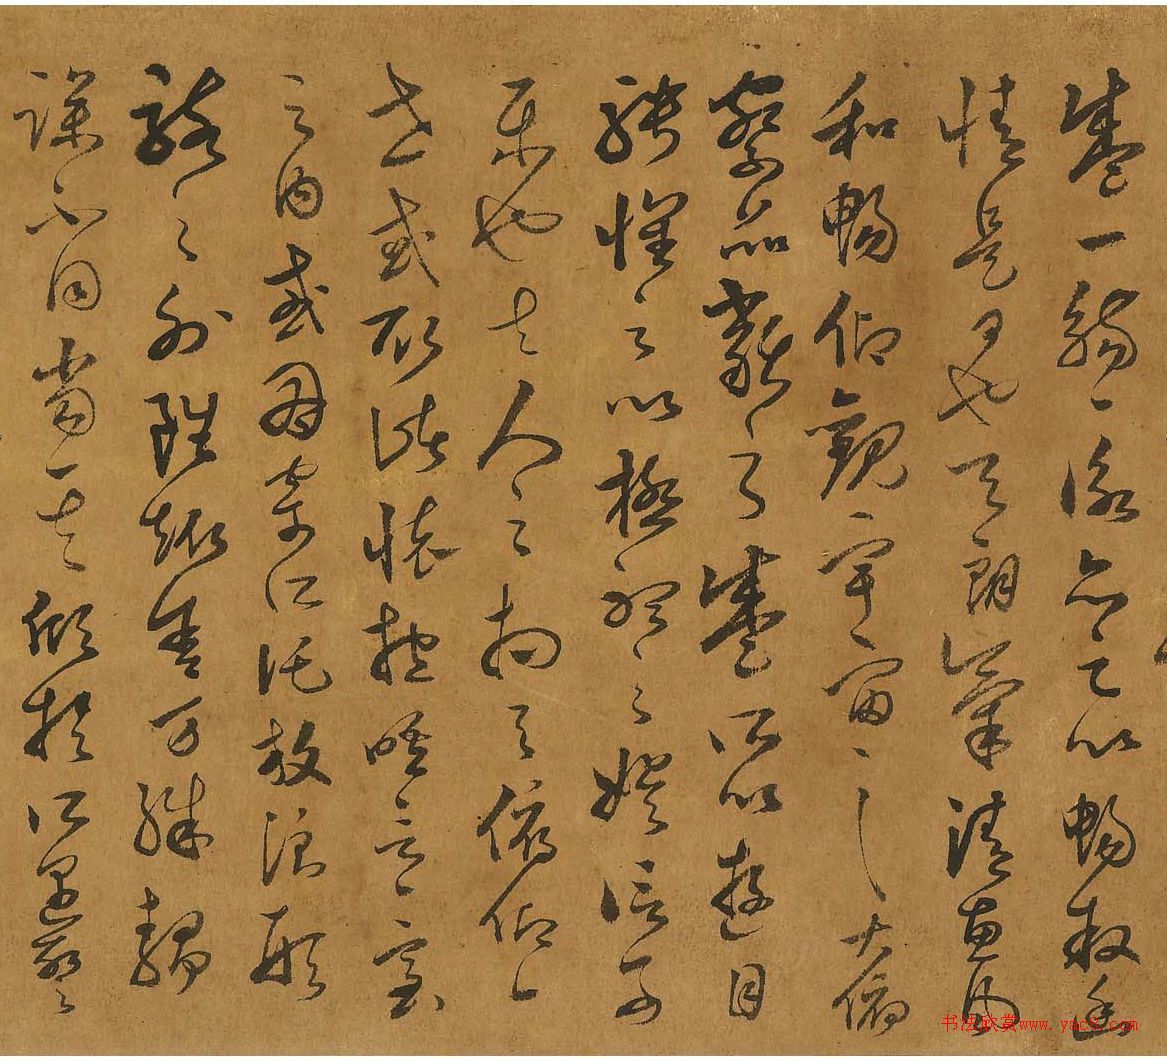 盛一觴一詠亦足以暢敘幽
情是日也天朗氣清惠風
和暢仰觀宇宙之大俯
察品類之盛所以遊目
騁懷足以極視聽之娛信可
樂也夫人之相與俯仰一
世或取諸懷抱悟言一室
之內或因寄所託放浪形
骸之外雖趣舍萬殊靜
躁不同當其欣於所遇暫
书法欣赏www.yac8.com